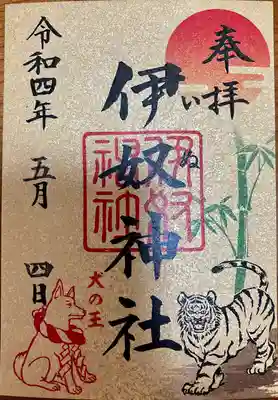 奉拝
伊奴神社
いぬ
伊奴神社
犬の王
令和四年 五月 四日